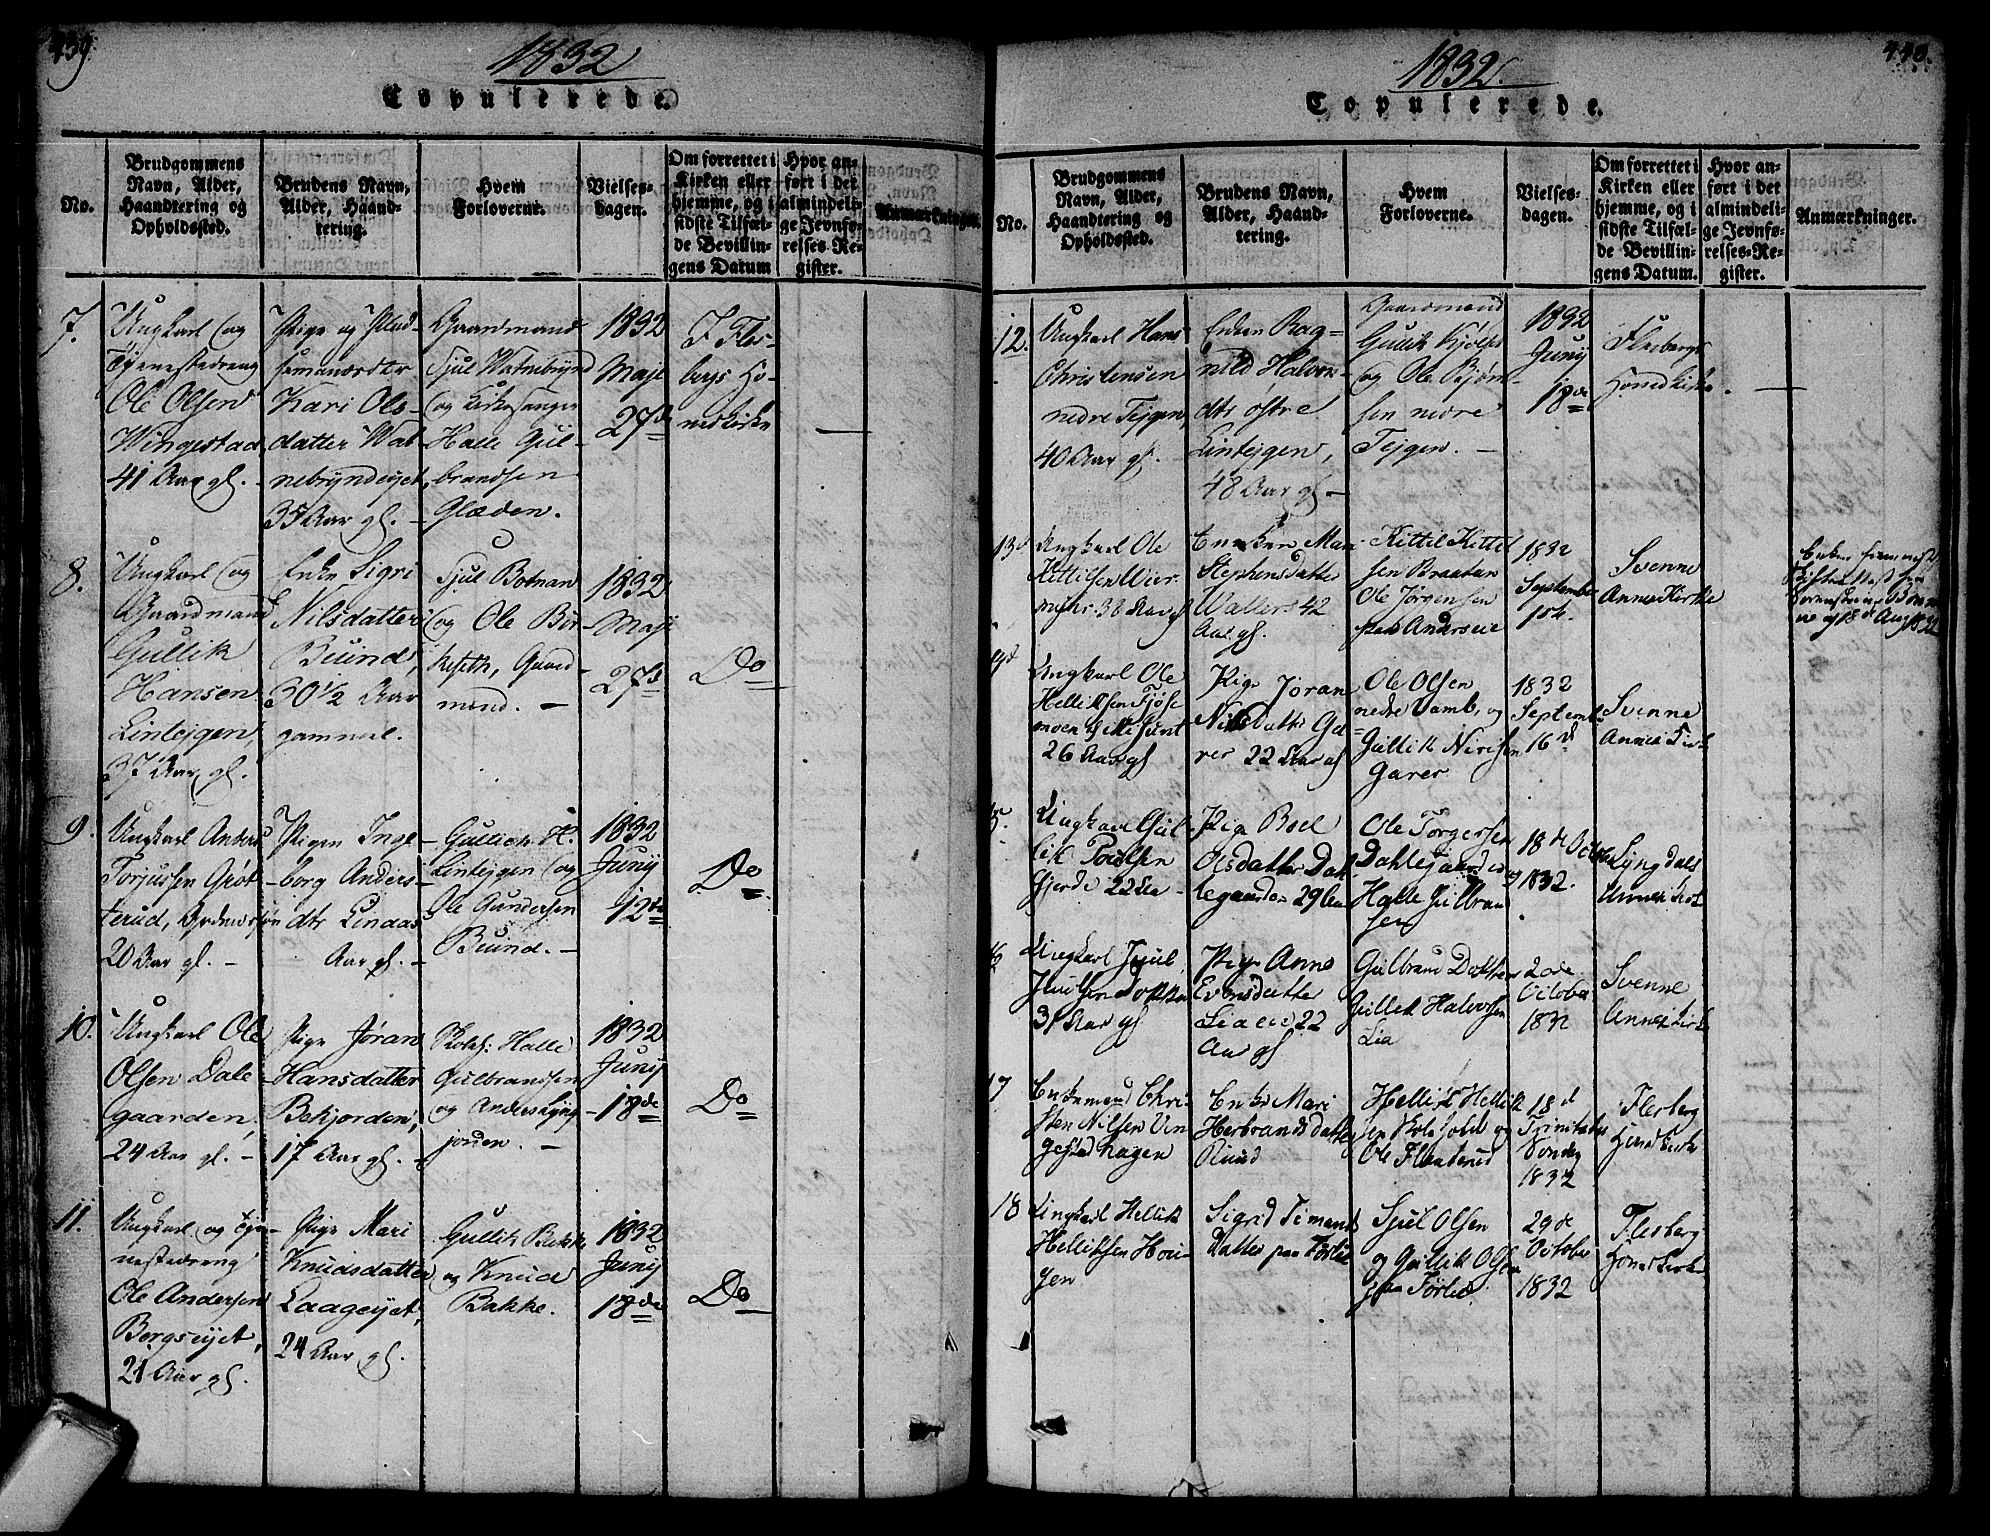 439.
1832
Copulerede.
No.
Brudgommens
Navn, Alder,
Haandtering og
Opholdssted.
Brudens Navn,
Alder, Haand-
tering.
Hvem
Forloverne.
Vielses-
dagen.
Om forrettet i
Kirken eller
hjemme, og i
sidste Tilfæl-
de Bevillin-
gens Datum
Hvor an-
ført i det
almindeli-
ge Jevnfø-
relses-Re-
gister.
Anmærkninger.
7.
Ungkarl og
Tjenestedreng
Ole Olsen
Wingestad
41 Aar gl. -
Pige og
Kari Ols-
datter Wat-
nebryndeyet,
35 Aar gl. -
Gaardmand
Sjul Watnebrynd
og Kirkesanger
Halle Gul-
brandsen
Gladen.
1832
Maji
27de
I Fles-
bergs Ho-
vedkirke
8.
Ungkarl og
Gaardmand
Gullik
Hansen
Lintejgen,
37 Aar gl.
Enke Sigri
Nilsdatter
Buind,
30 1/2 Aar
gammel.
Sjul Botnan
og Ole Bør-
keseth, Gaard-
mænd. -
1832
Maji
27de
Do
9.
Ungkarl Anders
Torjussen Grøt-
terud,
20 Aar gl. -
Pigen Inge-
borg Anders-
dtr Lindaas
Aar gl. -
Gullich H.
Lintejgen og
Ole Gundersen
Buind. -
1832
Juny
12te
Do
10.
Ungkarl Ole
Olsen Dale-
gaarden,
24 Aar gl. -
Pige Jøran
Hansdatter
Bekjorden,
17 Aar gl. -
Skoleh: Halle
Gulbrandsen
og Anders Lyng-
jorden. -
1832
Juny
18de
Do
11.
Ungkarl og Tje-
nestedreng
Ole Andersen
Bergseyet,
21 Aar gl.
Pige Mari
Knudsdatter
Laageyet,
24 Aar gl.
Gullik Bakke
og Knud
Bakke.
1832
Juny
18de
Do
440.
1832.
Copulerede.
No.
Brudgommens
Navn, Alder,
Haandtering og
Opholdssted.
Brudens Navn,
Alder, Haand-
tering.
Hvem
Forloverne.
Vielses-
dagen.
Om forrettet i
Kirken eller
hjemme, og i
sidste Tilfæl-
de Bevillin-
gens Datum.
Hvor an-
ført i det
almindeli-
ge Jevnfø-
relses-Re-
gister.
Anmærkninger.
12.
Ungkarl Hans
Christensen
nedre Tejgen,
40 Aar gl.
Enken Rag-
nild Halvors-
dtr østre
Lintejgen,
48 Aar gl -
Gaardmand
Gullik
og Ole Bjørn-
sen nedre
Tejgen. -
1832
Juny
18de
Flesbergs
Hovedkirke.
13
Ungkarl Ole
Kittilsen
38 Aar gl
Enken Mari
Stephensdatter
42
Aar gl.
Kittil Kittel
sen Braaten
Ole Jørgensen
1832
September
Svenne
Annex Kirke
Enken
14
Ungkarl Ole
Helliksen
26 Aar gl
Pige Jøran
Nilsdatter Ga-
rer 22 Aar gl
Ole Olsen
nedre og
Gullik
Garer
1832
Septemb.
16d
Svenne
Annex Kirk
15.
Ungkarl Gul-
lik Poulsen
Gjerde 22 Aa-
Pige Boel
Olsdatter Dah
legaarden 29 Aar
Ole Torgersen
Dahlegaarden og
Halle Gulbran
sen
18de October
1832.
Lyngdals
Annex Kirk
16
Ungkarl Sjul
Juulsen Dokken
31 Aar gl
Pige Anne
Evensdatter
Lia 22
Aar gl
Gulbrand Dokken
Gullik Halvorsen
Lia
20de
October
1832
Svenne
Annex Kirk
17
Enkemand Chri-
sten Nilsen Vin
gestad hagen
Enke Mari
Herbrandsdatter
Ruud
Hellik Hellik
sen og
Ole
18d
Trinitatis
Søndag
1832
Flesberg
Hovedkirke
18
Ungkarl Hellik
Helliksen Hovi-
gen
Sigrid Simens
Datter paa Førlie
Sjul Olsen
og Gullik Olsen
paa Førlie
29de
October
1832
Flesberg
Hovedkirke